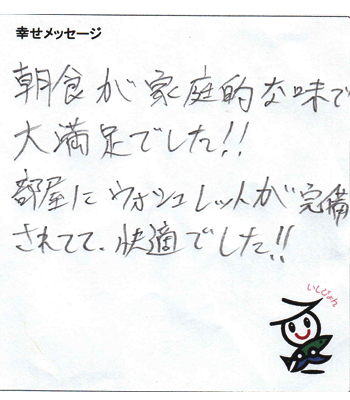 幸せメッセージ
朝食が家庭的な味で
大満足でした!!
部屋にウォシュレットが完備
されてて、快適でした!!
いしぴょん